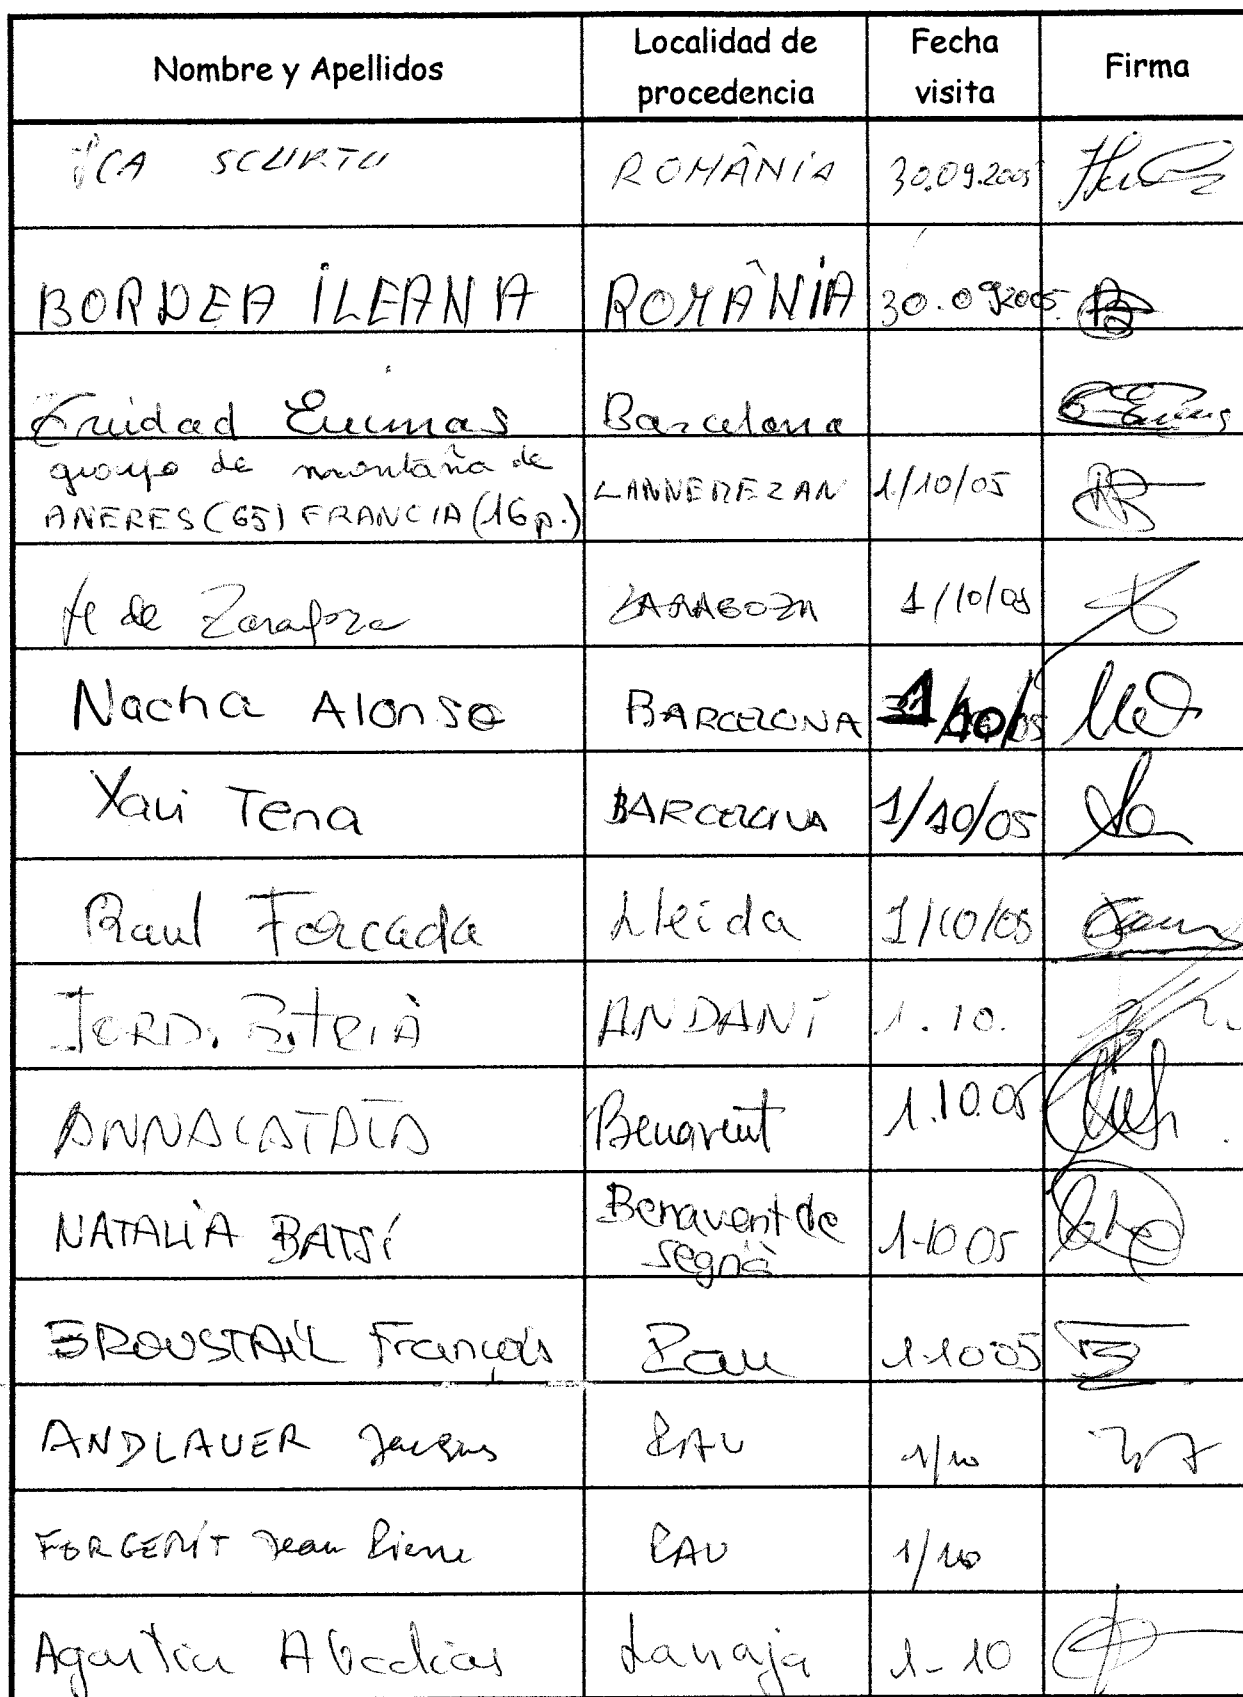 Nombre y Apellidos Localidad de procedencia Fecha visita Firma
SCURTU ROMÂNIA 30.09.2005
BORDEA ILEANA ROMÂNIA 30.09.2005
Barcelona
groupo de montaña de
ANERES (65) FRANCIA (16 p.) LANNEMEZAN 1/10/05
de Zaragoza ZARAGOZA 1/10/05
Nacha Alonso BARCELONA 1/10/05
Xavi Tena BARCELONA 1/10/05
Raul Forcada Lleida 1/10/05
JORDI BITRIÀ ANDANÍ 1.10.
ANNA CATALÀ Benavent 1.10.05
NATALIA Benavent de segrià 1-10 05
BROUSTAIL François Pau 1-10 05
ANDLAUER Jacques PAU 1/10
Jean Pierre PAU 1/10
Abadias Lanaja 1-10